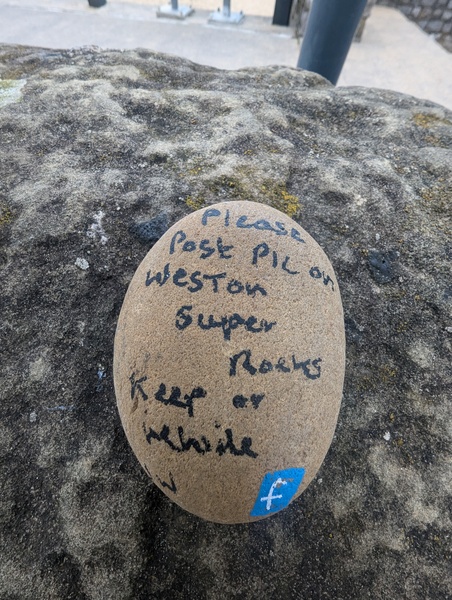 Please
Post PIC on
Weston
Super
Rocks
Keep or
rehide
f